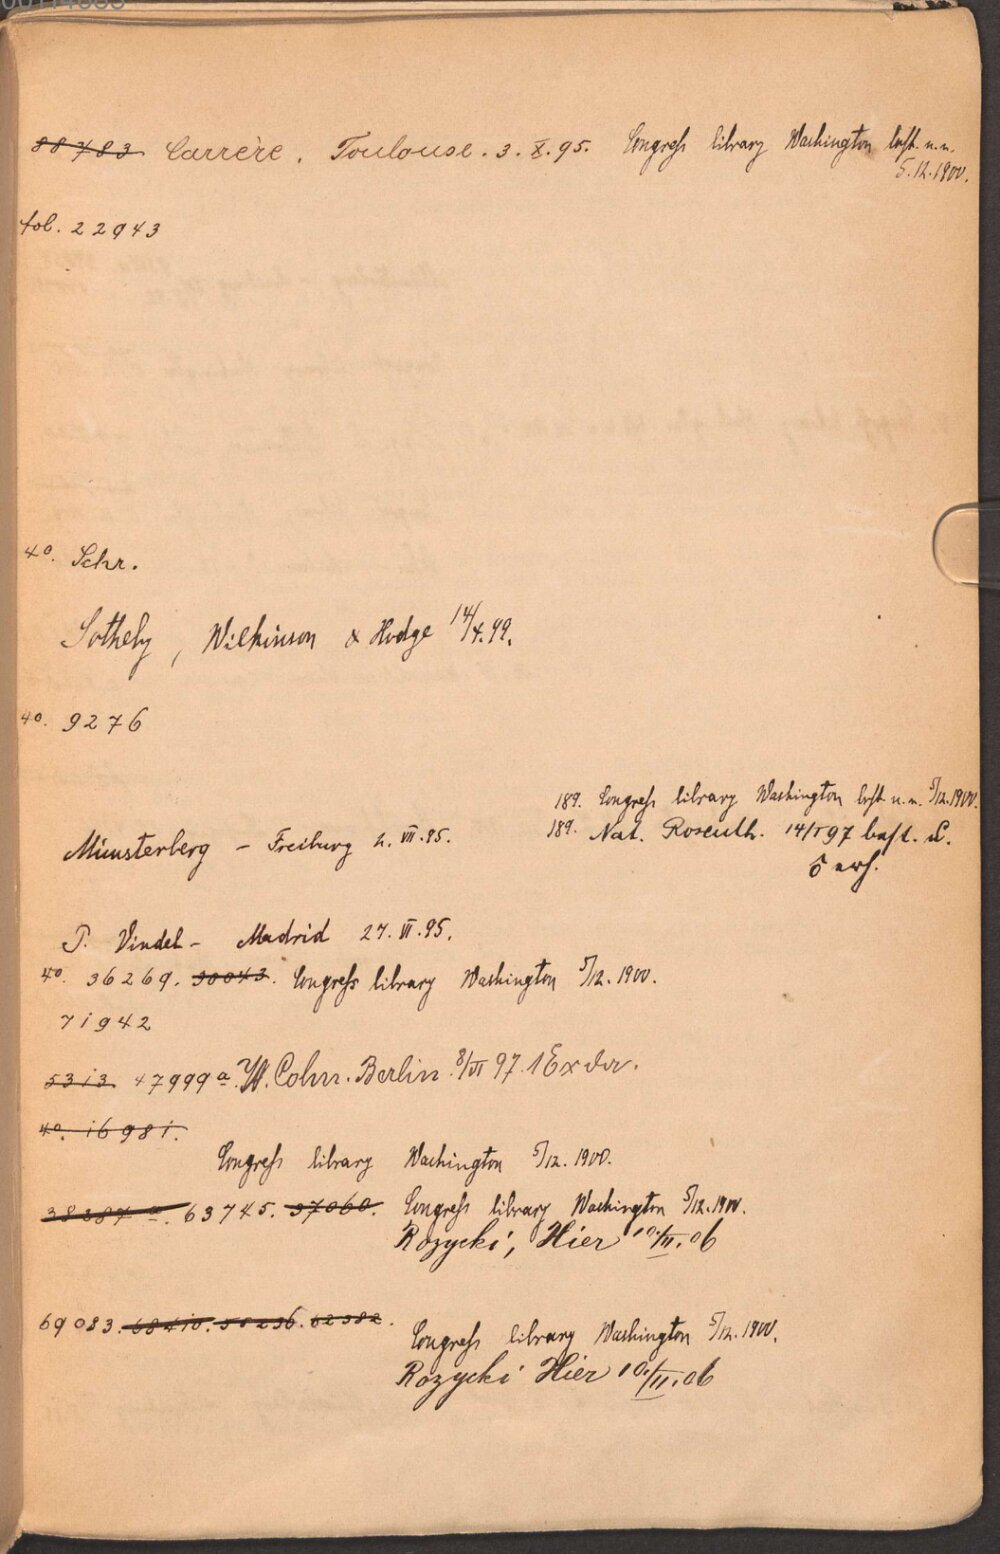 88783 Carrère. Toulouse. 3. X. 95. Congreß library Washington best. u. n.
5.12.1900.
fol. 22943
4o. Schr.
Sotheby, Wilkinson & Hodge 14/X.99.
4o. 9276
189. Congreß library Washington best u. n. 5/12.1900.
189. Nat. Rosenth. 14/I 97 best. u.
Münsterberg - Freiburg 2. VII. 95.
erh.
P. Vindel - Madrid 27. VI. 95.
4o. 36269. 30043. Congreß library Washington 5/12. 1900.
71942
5313 47999a. W. Cohn. Berlin. 8/VI 97. 1 Ex
4o. 16981.
Congreß library Washington 5/12. 1900.
38387 a. 63745. 37060. Congreß library Washington 5/12. 1900.
Rozycki, Hier 10./II. 06
69083. 68410. 58236. 62382.
Congreß library Washington 5/12. 1900.
Rozycki Hier 10./II. 06